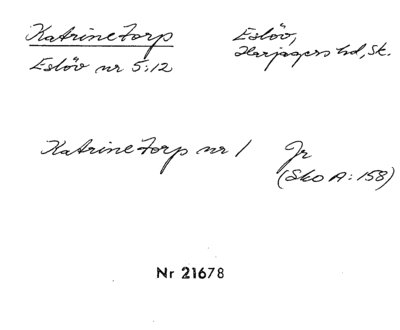 Katrinetorp
Eslöv nr 5:12
Eslöv,
Harjagers hd, Sk.
Katrinetorp nr 1
Jr
(Sko A: 158)
Nr 21678